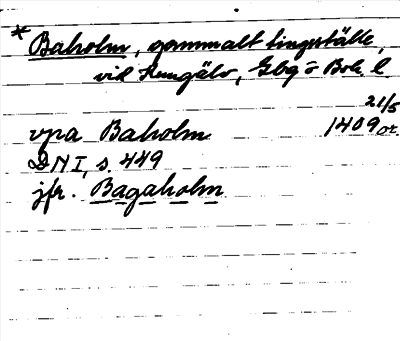 * Baholm, gammalt tingställe,
vid Kungälv, Gbg o Boh. l
21/5
vpa Baholm 1409 or.
DN I, s. 449
jfr. Bagaholm